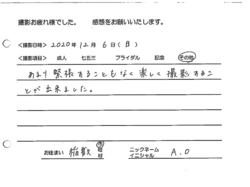 撮影お疲れ様でした。 感想をお願いいたします。
<撮影日時> 2020年12月6日(日)
<撮影項目> 成人 七五三 ブライダル 記念 その他
あまり緊張することもなく楽しく撮影するこ
とが出来ました。
お住まい 稲敷 市 ニックネーム イニシャル A.O